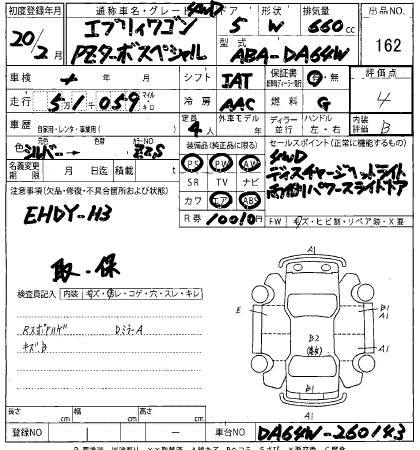 初度登録年月 通称車名・グレード ドア 形状 排気量 出品No.
エブリィワゴン 4WD 5 W 660cc
20/2月 PZターボスペシャル 型式 ABA-DA64W 162
車検 年 月 シフト IAT 保証書 有・無 評価点
走行 5万1千059 マイル キロ 冷房 AAC 燃料 G 4
車歴 自家用・レンタ・事業用( ) 定員 4人 外車モデル 年 ディーラー 並行 ハンドル 左・右 内装評価 B
色 元色 シルバー 色替 カラーNo Z2S 装備品(純正品に限る) セールスポイント(正常に機能するもの)
名義変更期限 月 日迄 積載 t PS PW AW
4WD
ディスチャージヘッドライト
両側パワースライドドア
注意事項(欠品・修復・不具合箇所および状態) SR TV ナビ
EHDY-H3 カワ エア ABS
R券 10010円 FW キズ・ヒビ割・リペア跡・X要
取・保
検査員記入 内装 キズ・汚レ・コゲ・穴・スレ・キレ
Dミラー A
キズB
A1
E B1 A1
B2
A1
B1
A1
長さ cm 幅 cm 高さ cm
登録NO 車台NO DA64W-260143